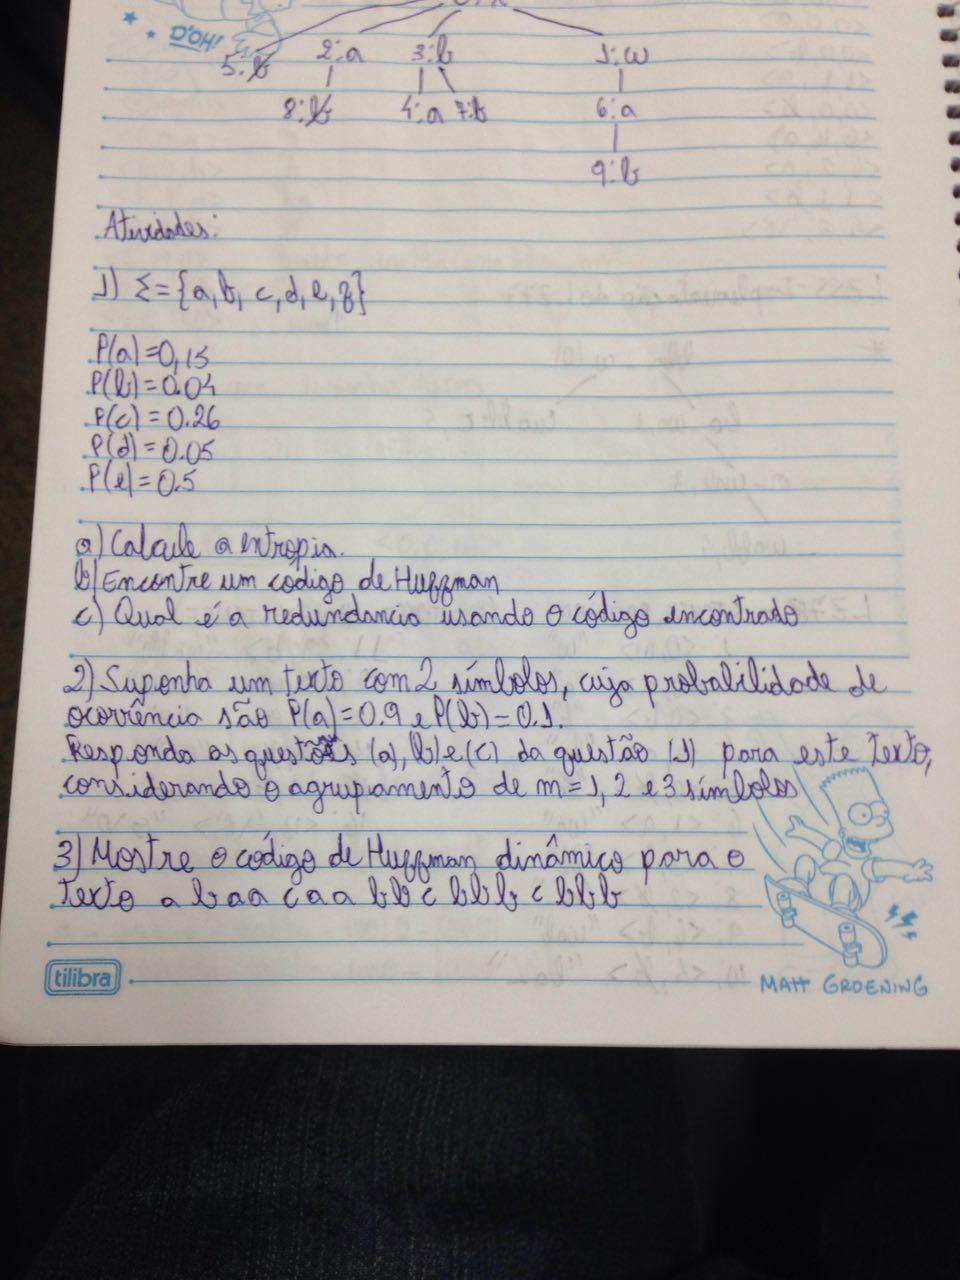 D'OH!
5:b 2:a 3:b 1:w
8:b 4:a 7:b 6:a
9:b
Atividades:
1) Σ={a,b,c,d,e,f}
P(a)=0,15
P(b)=0.04
P(c)=0.26
P(d)=0.05
P(e)=0.5
a) Calcule a entropia.
b) Encontre um codigo de Huffman
c) Qual é a redundancia usando o código encontrado
2) Suponha um texto com 2 símbolos, cuja probabilidade de
ocorrência são P(a)=0.9 e P(b)=0.1.
Responda as questões (a), (b) e (c) da questão (1) para este texto,
considerando o agrupamento de m=1, 2 e 3 símbolos
3) Mostre o código de Huffman dinâmico para o
texto a b aa c a a b b c b b b c b b b
tilibra
MATT GROENING